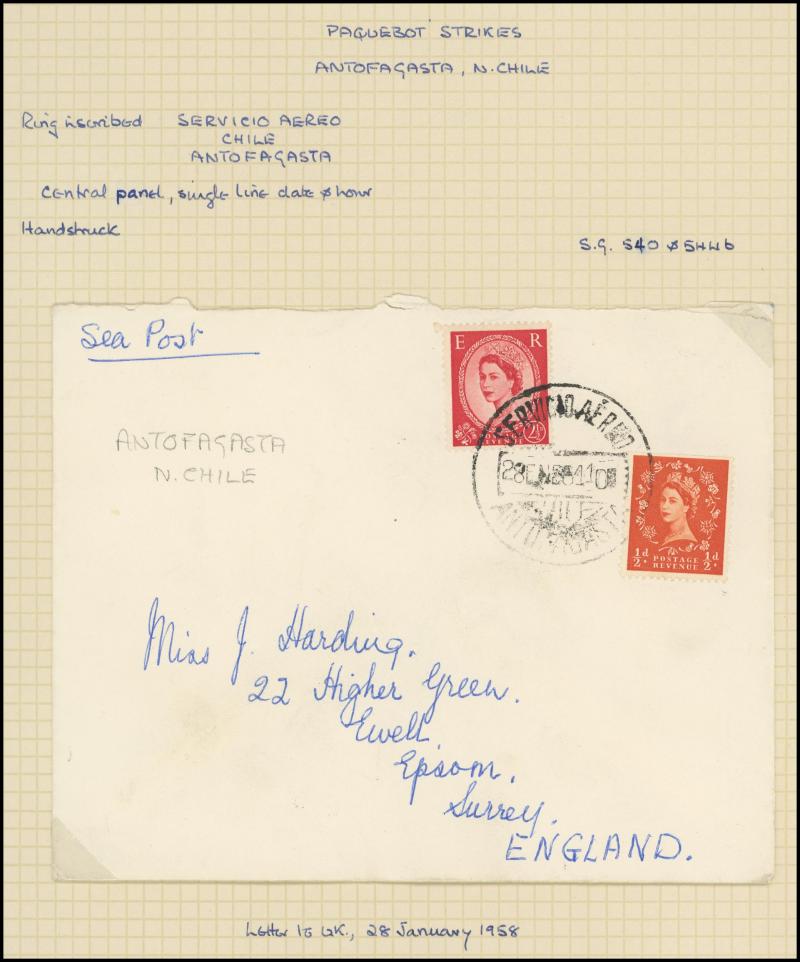 PAQUEBOT STRIKES
ANTOFAGASTA, N. CHILE
Ring inscribed SERVICIO AEREO
CHILE
ANTOFAGASTA
Central panel, single line date & hour
Handstruck
S.G. 540 &
Sea Post
E R
2½
REVENUE
ANTOFAGASTA
N. CHILE
SERVICIO AÉREO
28 EN
CHILE
ANTOFAGASTA
½d ½d
POSTAGE
REVENUE
Miss J. Harding.
22 Higher Green.
Ewell.
Epsom.
Surrey.
ENGLAND.
Letter to UK., 28 January 1958